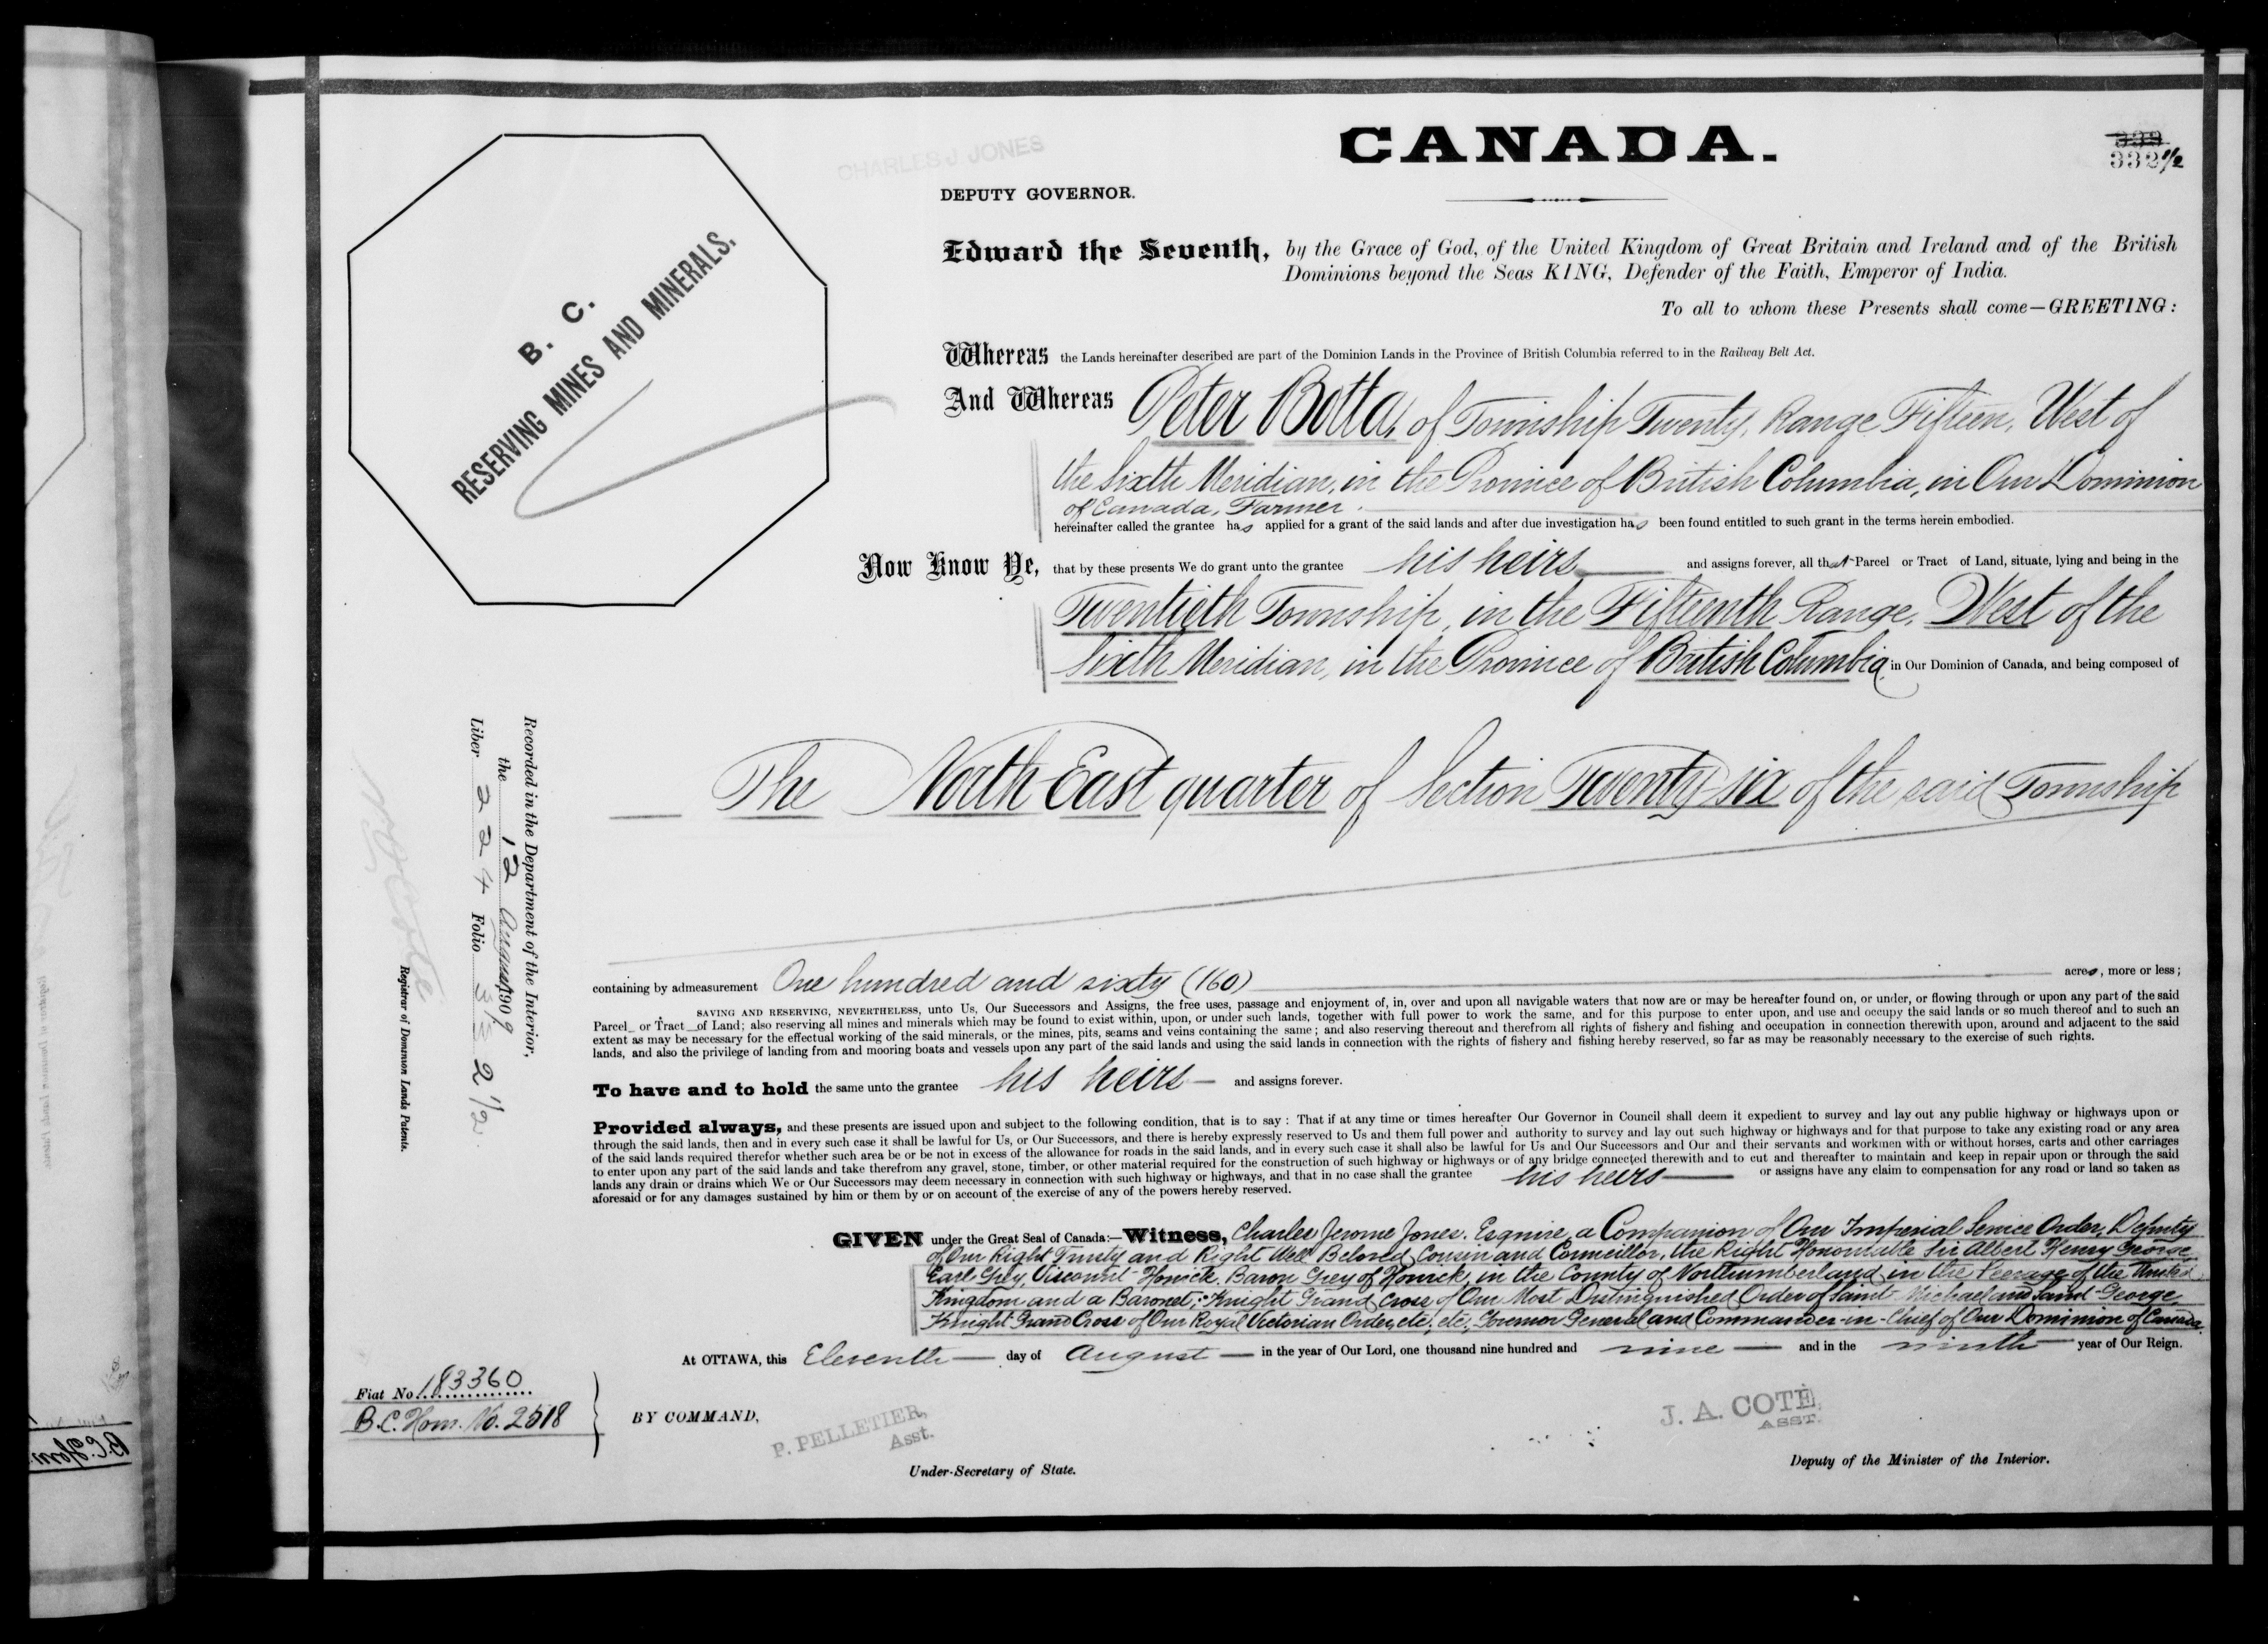 CANADA.
332
332 1/2
CHARLES J. JONES
DEPUTY GOVERNOR.
B. C.
RESERVING MINES AND MINERALS.
Edward the Seventh, by the Grace of God, of the United Kingdom of Great Britain and Ireland and of the British
Dominions beyond the Seas KING, Defender of the Faith, Emperor of India.
To all to whom these Presents shall come—GREETING:
Whereas the Lands hereinafter described are part of the Dominion Lands in the Province of British Columbia referred to in the Railway Belt Act.
And Whereas Peter Botta, of Township Twenty, Range Fifteen, West of
the Sixth Meridian, in the Province of British Columbia, in Our Dominion
of Canada, Farmer.
hereinafter called the grantee has applied for a grant of the said lands and after due investigation has been found entitled to such grant in the terms herein embodied.
Now Know Ye, that by these presents We do grant unto the grantee his heirs and assigns forever, all that Parcel or Tract of Land, situate, lying and being in the
Twentieth Township, in the Fifteenth Range, West of the
Sixth Meridian, in the Province of British Columbia, in Our Dominion of Canada, and being composed of
The North East quarter of Section Twenty-six of the said Township
containing by admeasurement One hundred and sixty (160) acres, more or less;
SAVING AND RESERVING, NEVERTHELESS, unto Us, Our Successors and Assigns, the free uses, passage and enjoyment of, in, over and upon all navigable waters that now are or may be hereafter found on, or under, or flowing through or upon any part of the said
Parcel or Tract of Land; also reserving all mines and minerals which may be found to exist within, upon, or under such lands, together with full power to work the same, and for this purpose to enter upon, and use and occupy the said lands or so much thereof and to such an
extent as may be necessary for the effectual working of the said minerals, or the mines, pits, seams and veins containing the same; and also reserving thereout and therefrom all rights of fishery and fishing and occupation in connection therewith upon, around and adjacent to the said
lands, and also the privilege of landing from and mooring boats and vessels upon any part of the said lands and using the said lands in connection with the rights of fishery and fishing hereby reserved, so far as may be reasonably necessary to the exercise of such rights.
To have and to hold the same unto the grantee his heirs and assigns forever.
Provided always, and these presents are issued upon and subject to the following condition, that is to say: That if at any time or times hereafter Our Governor in Council shall deem it expedient to survey and lay out any public highway or highways upon or
through the said lands, then and in every such case it shall be lawful for Us, or Our Successors, and there is hereby expressly reserved to Us and them full power and authority to survey and lay out such highway or highways and for that purpose to take any existing road or any area
of the said lands required therefor whether such area be or be not in excess of the allowance for roads in the said lands, and in every such case it shall also be lawful for Us and Our Successors and Our and their servants and workmen with or without horses, carts and other carriages
to enter upon any part of the said lands and take therefrom any gravel, stone, timber, or other material required for the construction of such highway or highways or of any bridge connected therewith and to cut and thereafter to maintain and keep in repair upon or through the said
lands any drain or drains which We or Our Successors may deem necessary in connection with such highway or highways, and that in no case shall the grantee his heirs or assigns have any claim to compensation for any road or land so taken as
aforesaid or for any damages sustained by him or them by or on account of the exercise of any of the powers hereby reserved.
GIVEN under the Great Seal of Canada:—Witness, Charles Jerome Jones, Esquire, a Companion of Our Imperial Service Order, Deputy
of Our Right Trusty and Right Well Beloved Cousin and Councillor, the Right Honourable Sir Albert Henry George,
Earl Grey, Viscount Howick, Baron Grey of Howick, in the County of Northumberland in the Peerage of the United
Kingdom and a Baronet; Knight Grand Cross of Our Most Distinguished Order of Saint Michael and Saint George,
Knight Grand Cross of Our Royal Victorian Order, etc., etc., Governor General and Commander-in-Chief of Our Dominion of Canada.
At OTTAWA, this Eleventh day of August in the year of Our Lord, one thousand nine hundred and nine and in the ninth year of Our Reign.
Fiat No. 183360
B.C. Hom. No. 2518
BY COMMAND,
P. PELLETIER,
Asst.
Under-Secretary of State.
J. A. COTE,
ASST.
Deputy of the Minister of the Interior.
Recorded in the Department of the Interior,
the 12 August 1909
Liber 224 Folio 332 1/2.
Registrar of Dominion Lands Patents.